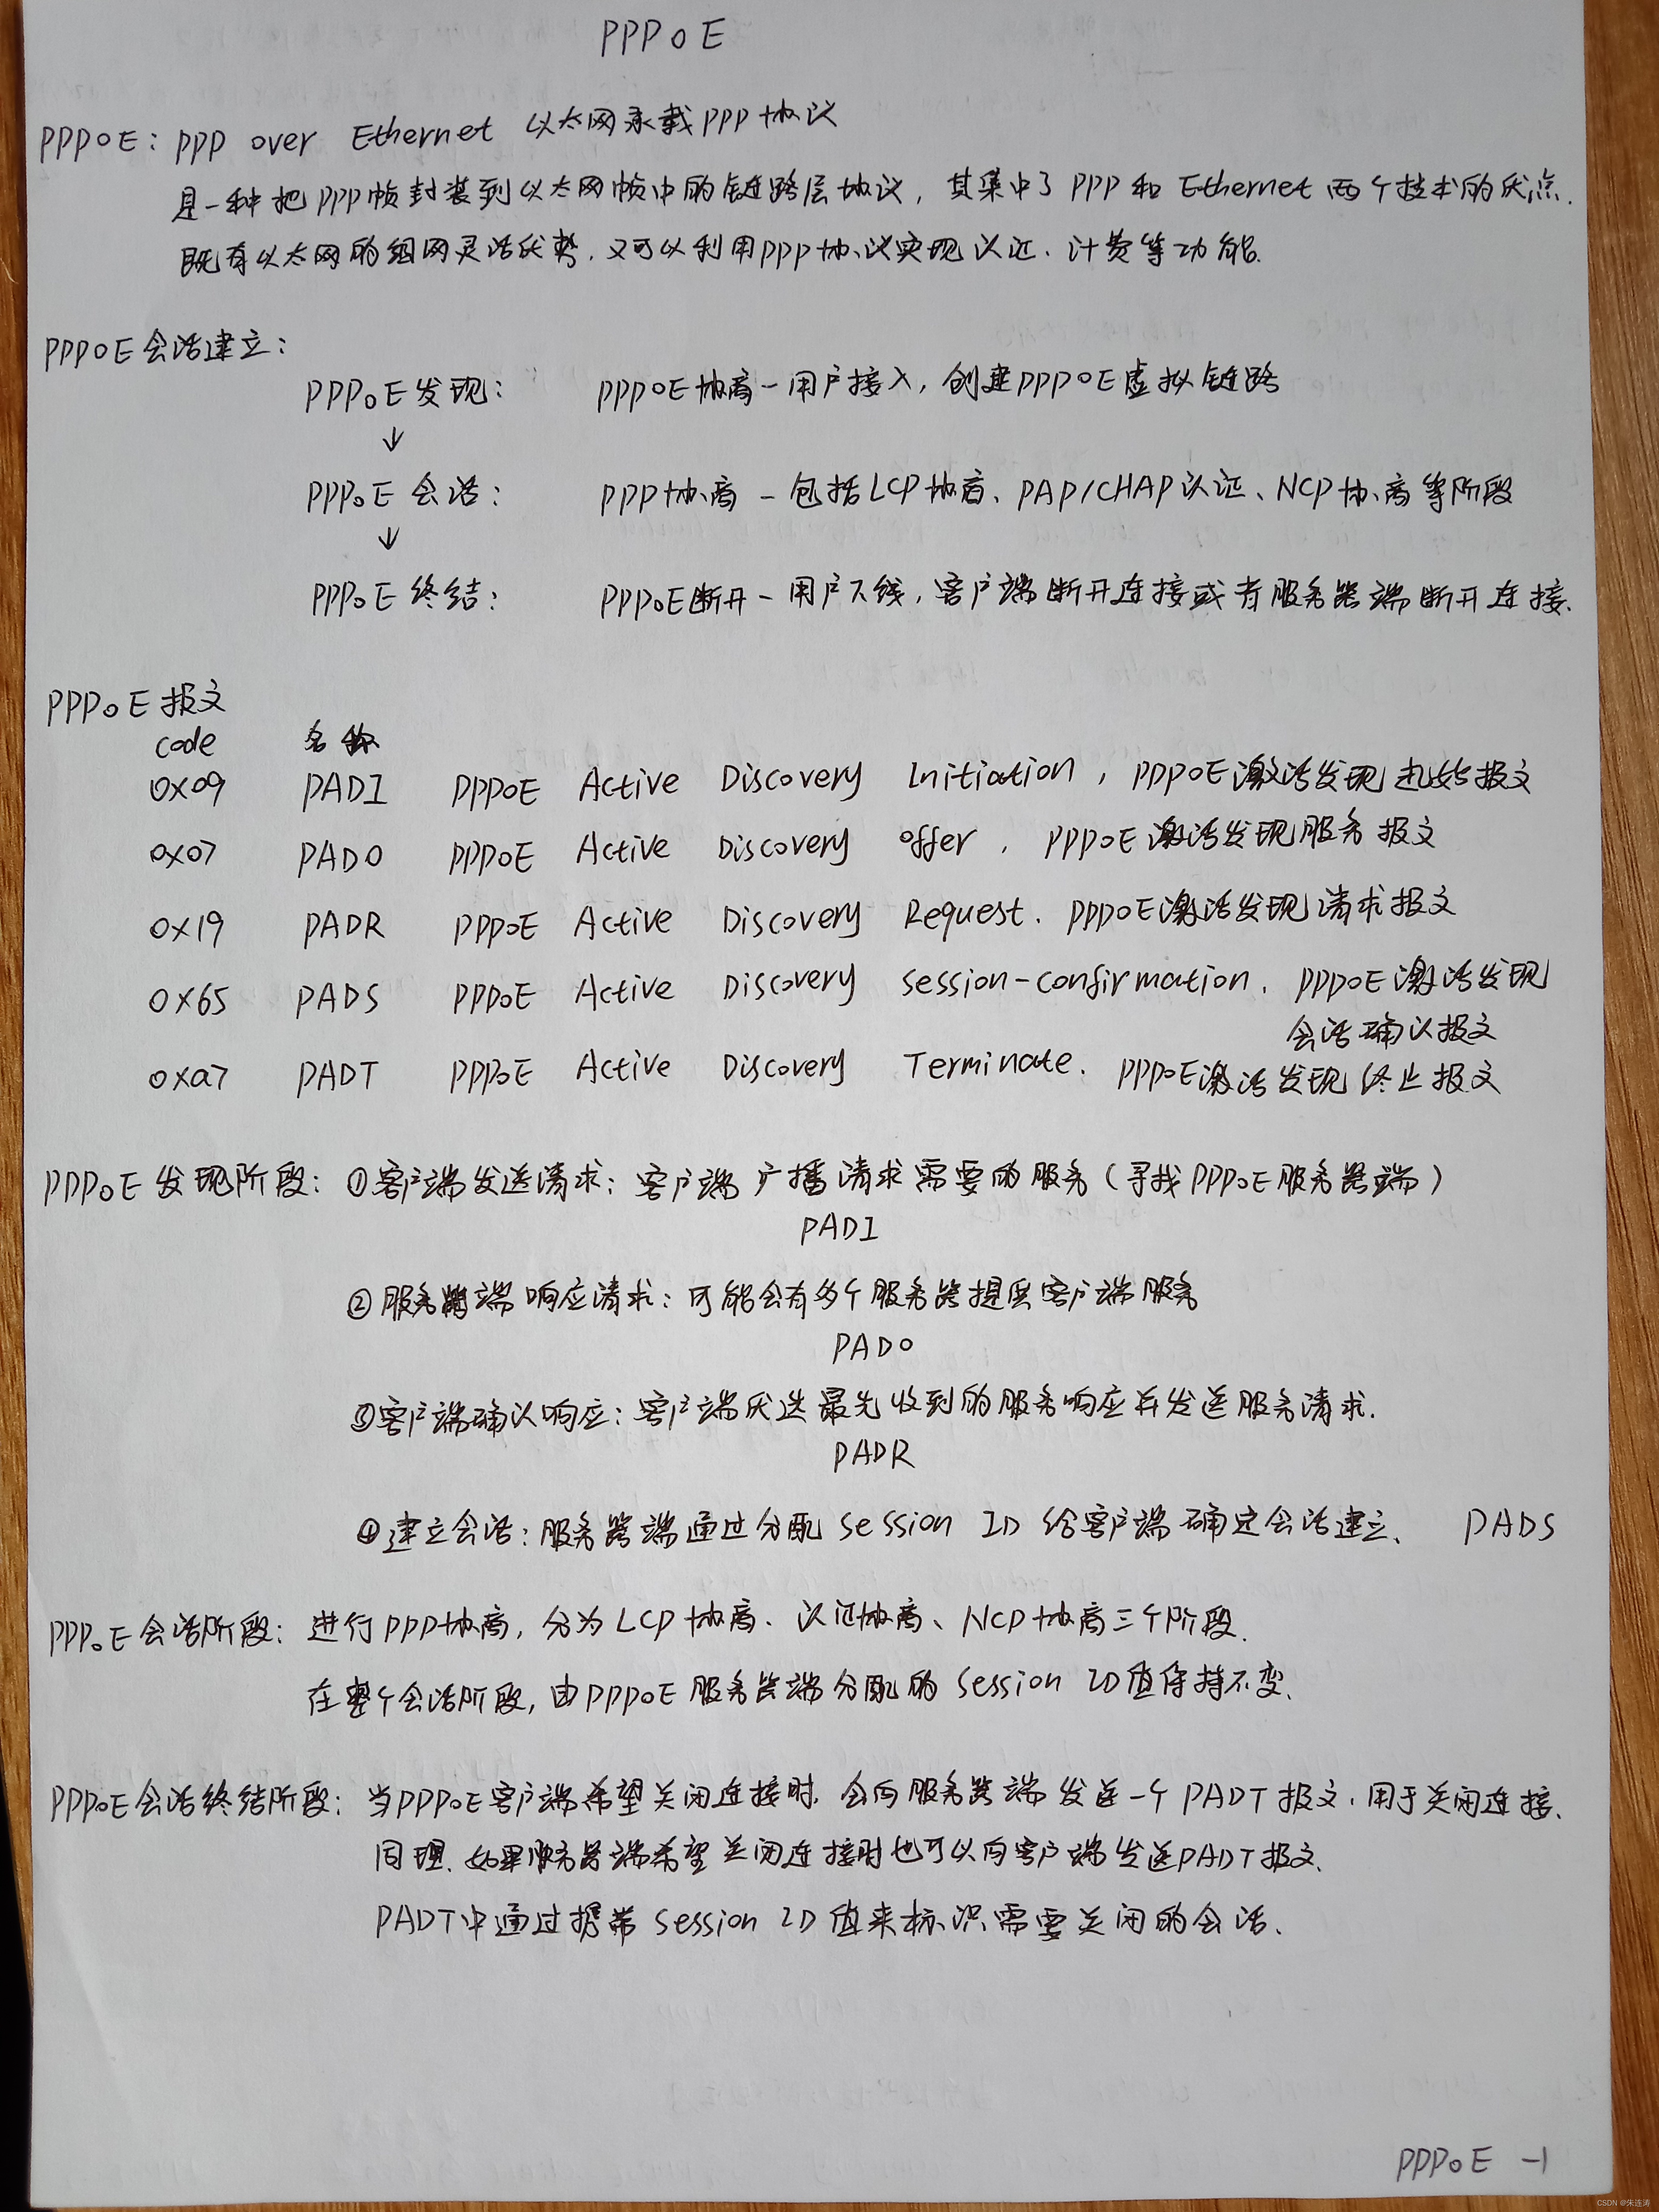 PPPoE
PPPoE: PPP over Ethernet 以太网承载PPP协议
是一种把PPP帧封装到以太网帧中的链路层协议，其集中了PPP和Ethernet两个技术的优点.
既有以太网的组网灵活优势，又可以利用PPP协议实现认证、计费等功能.
PPPoE会话建立:
PPPoE发现: PPPoE协商-用户接入，创建PPPoE虚拟链路
↓
PPPoE会话: PPP协商-包括LCP协商、PAP/CHAP认证、NCP协商等阶段
↓
PPPoE终结: PPPoE断开-用户下线，客户端断开连接或者服务器端断开连接.
PPPoE报文
code 名称
0x09 PADI PPPoE Active Discovery Initiation，PPPoE激活发现起始报文
0x07 PADO PPPoE Active Discovery offer，PPPoE激活发现服务报文
0x19 PADR PPPoE Active Discovery Request. PPPoE激活发现请求报文
0x65 PADS PPPoE Active Discovery session-confirmation. PPPoE激活发现
会话确认报文
0xa7 PADT PPPoE Active Discovery Terminate. PPPoE激活发现终止报文
PPPoE发现阶段: ①客户端发送请求: 客户端广播请求需要的服务(寻找PPPoE服务器端)
PADI
②服务器端响应请求: 可能会有多个服务器提供客户端服务
PADO
③客户端确认响应: 客户端优选最先收到的服务响应并发送服务请求.
PADR
④建立会话: 服务器端通过分配session ID给客户端确定会话建立、 PADS
PPPoE会话阶段: 进行PPP协商，分为LCP协商、认证协商、NCP协商三个阶段.
在整个会话阶段，由PPPoE服务器端分配的session ID值保持不变.
PPPoE会话终结阶段: 当PPPoE客户端希望关闭连接时，会向服务器端发送一个PADT报文，用于关闭连接.
同理，如果服务器端希望关闭连接时也可以向客户端发送PADT报文.
PADT中通过携带session ID值来标识需要关闭的会话.
PPPoE -1
CSDN @朱连涛